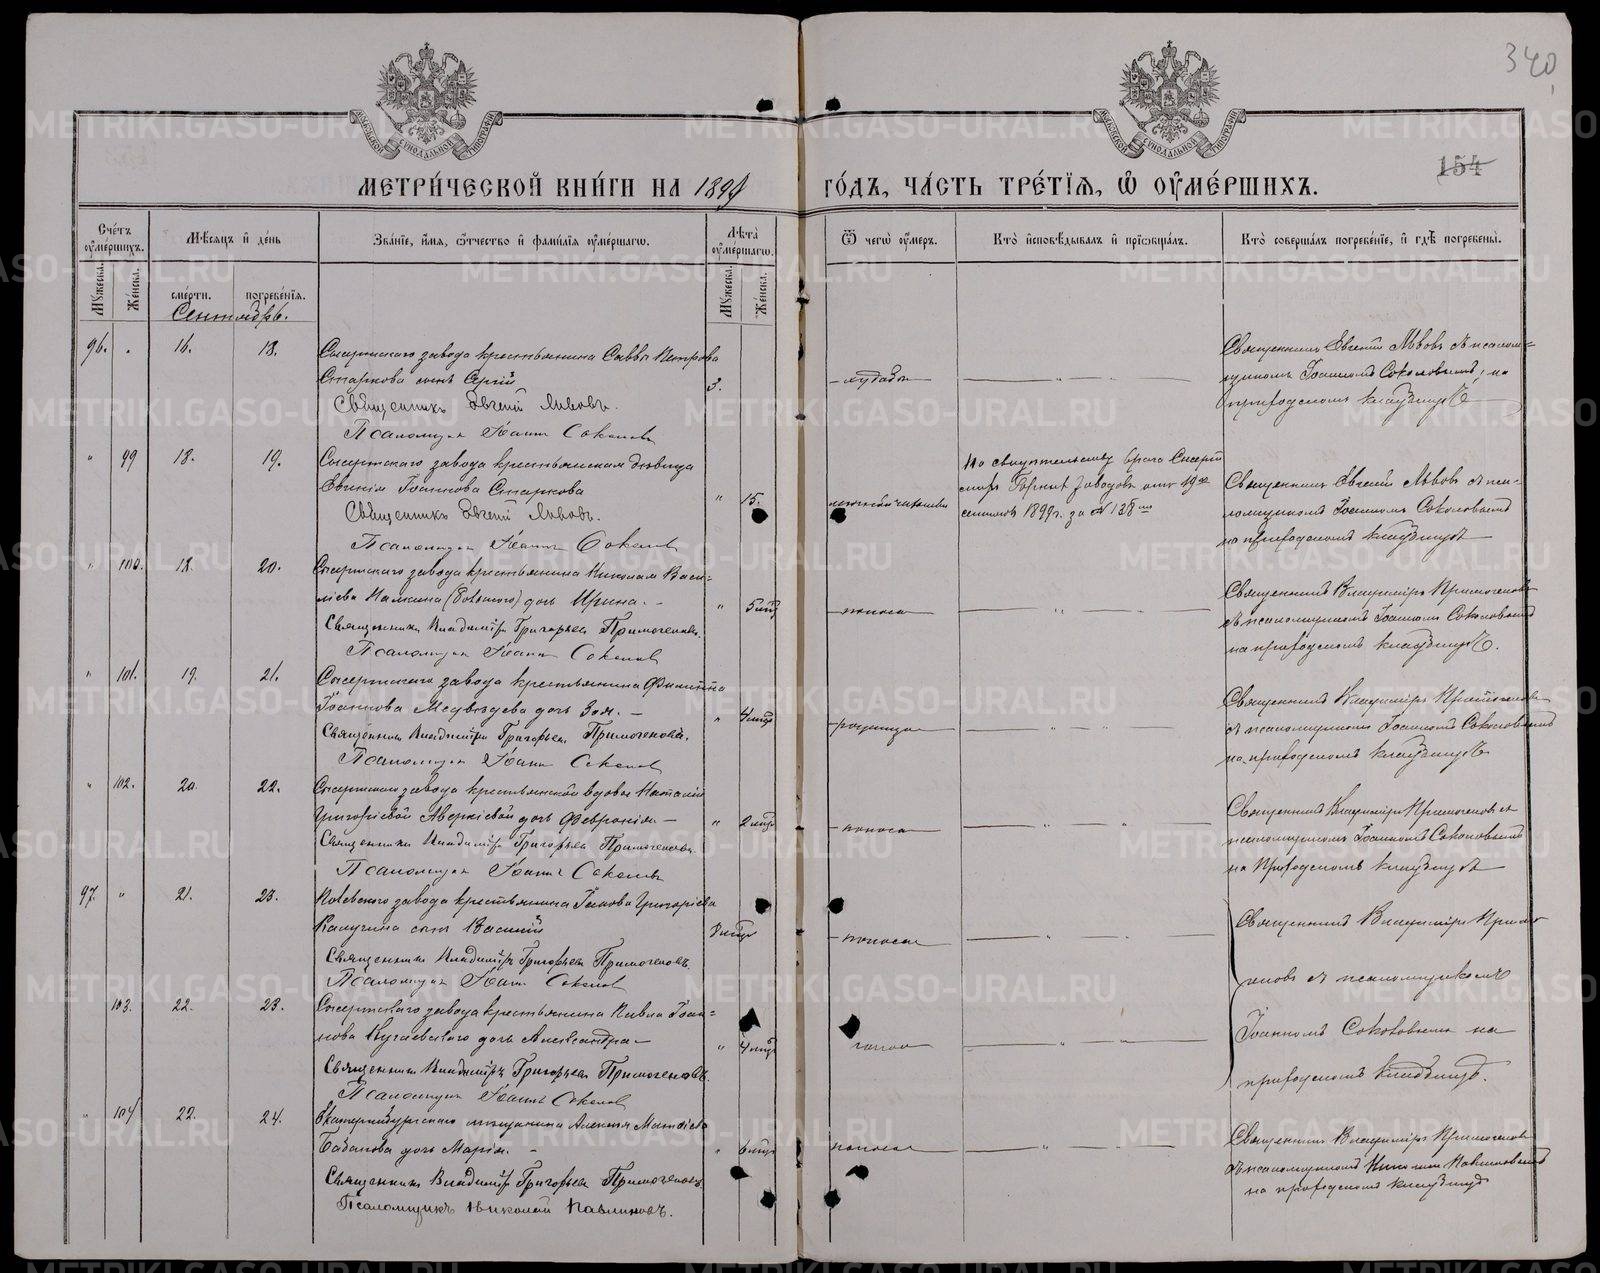 340
154
СѴНОДАЛЬНОЙ ТИПОГРАФІИ
МЕТРИ́ЧЕСКОЙ КНИ́ГИ НА 1899 ГО́ДЪ, ЧА́СТЬ ТРЕ́ТІѦ, Ѡ҆ ОУ҆МЕ́РШИХЪ.
Сче́тъ оу҆ме́ршихъ.
Мѣ́сѧцъ и҆ де́нь
Зва́нїе, и҆́мѧ, ѻ҆́тчество и҆ фами́лїѧ оу҆ме́ршагѡ.
Лѣ́та оу҆ме́ршагѡ.
Ѿ чегѡ̀ оу҆́меръ.
Кто̀ и҆сповѣ́дывалъ и҆ прїѡбща́лъ.
Кто̀ соверша́лъ погребе́нїе, и҆ гдѣ̀ погребены̀.
Мꙋ́жеска.
Же́нска.
сме́рти.
погребе́нїѧ.
Мꙋ́жеска.
Же́нска.
Сентябрь.
96. " 16. 18. Сысертскаго завода крестьянина Саввы Петрова
Старкова сынъ Сергій 3.
Священникъ Евгеній Львовъ.
Псаломщик Іоаннъ Соколовъ
Священникъ Евгеній Львовъ съ псалом=
щикомъ Іоанномъ Соколовымъ, на
приходскомъ кладбищѣ
" 99 18. 19. Сысертскаго завода крестьянская дѣвица
Евгенія Іоаннова Старкова " 15.
Священникъ Евгеній Львовъ.
Псаломщик Іоаннъ Соколовъ
По свидѣтельству врача Сысерт
скихъ Горныхъ заводовъ отъ 19го
сентября 1899 г. за № 138мъ
Священникъ Евгеній Львовъ съ пса-
ломщикомъ Іоанномъ Соколовымъ
на приходскомъ кладбищѣ
" 100. 18. 20. Сысертскаго завода крестьянина Николая Васи=
льева дочь Ирина. - " 5 мцъ поноса
Священникъ Владиміръ Григорьевъ Примогеновъ.
Псаломщик Іоаннъ Соколовъ
Священникъ Владиміръ Примогеновъ
съ псаломщикомъ Іоанномъ Соколовымъ
на приходскомъ кладбищѣ.
" 101. 19. 21. Сысертскаго завода крестьянина Филиппа
Іоаннова Медвѣдева дочь Зоя. - " 4 мцъ родимца
Священникъ Владиміръ Григорьевъ Примогеновъ.
Псаломщик Іоаннъ Соколовъ
Священникъ Владиміръ Примогеновъ
съ псаломщикомъ Іоанномъ Соколовымъ
на приходскомъ кладбищѣ
" 102. 20. 22. Сысертскаго завода крестьянской вдовы Наталіи
Григорьевой Аверкіевой дочь Февронія. - " 2 мцъ поноса
Священникъ Владиміръ Григорьевъ Примогеновъ.
Псаломщик Іоаннъ Соколовъ
Священникъ Владиміръ Примогеновъ съ
псаломщикомъ Іоанномъ Соколовымъ
на приходскомъ кладбищѣ
97. " 21. 23. Полевского завода крестьянина Іакова Григорьева
Калугина сынъ Василій 8 мцъ поноса
Священникъ Владиміръ Григорьевъ Примогеновъ.
Псаломщик Іоаннъ Соколовъ
Священникъ Владиміръ Примо
геновъ съ псаломщикомъ
Іоанномъ Соколовымъ на
приходскомъ кладбищѣ.
103. 22. 23. Сысертскаго завода крестьянина Павла Іоан=
нова дочь Александра - " 4 мцъ поноса
Священникъ Владиміръ Григорьевъ Примогеновъ.
Псаломщик Іоаннъ Соколовъ
" 104 22. 24. Екатеринбургскаго мѣщанина Алексѣя Матвѣева
Бабанова дочь Марія. - " 6 мцъ поноса
Священникъ Владиміръ Григорьевъ Примогеновъ
Псаломщикъ Николай Павлиновъ.
Священникъ Владиміръ Примогеновъ
съ псаломщикомъ Николаемъ Павлиновымъ
на приходскомъ кладбищѣ
METRIKI.GASO-URAL.RU